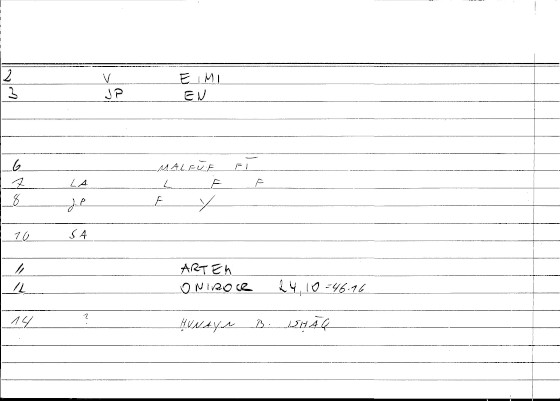 2 V EIMI
3 JP EN
6 MALFŪF FĪ
7 LA L F F
8 JP F Y
10 SA
11 ARTEM
12 ONIROCR 24,10=46.16
14 ? ḤUNAYN B. ISḤĀQ